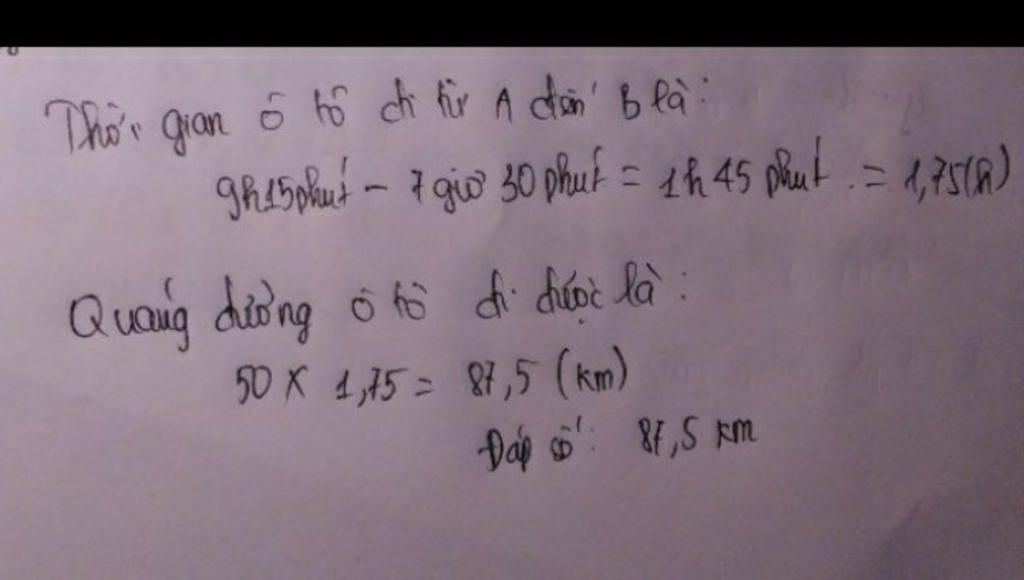 Thời gian ô tô đi từ A đến B là:
9h15phút - 7 giờ 30 phút = 1h 45 phút. = 1,75(h)
Quãng đường ô tô đi được là:
50 x 1,75 = 87,5 (km)
Đáp số: 87,5 km